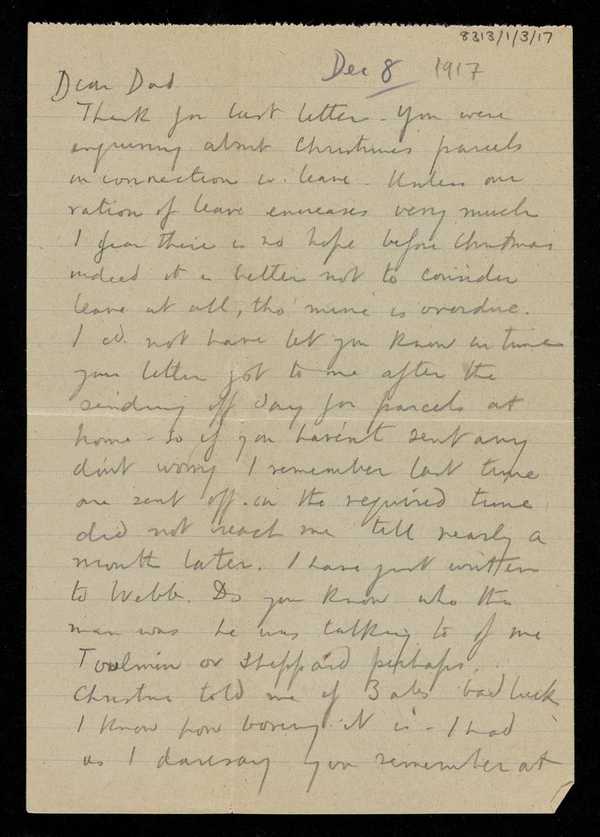 8313/1/3/17
Dec 8 1917
Dear Dad
Thank for last letter - You were
enquiring about Christmas parcels
in connection w. leave - Unless our
ration of leave encreases very much
I fear there is no hope before Christmas
indeed it is better not to consider
leave at all, tho' mine is overdue.
I cd. not have let you know in time
your letter got to me after the
sending off day for parcels at
home - so if you haven't sent any
don't worry I remember last time
one sent off in the required time
did not reach me till nearly a
month later. I have just written
to Webb. Do you know who the
man was he was talking to of me
Toulmin or Sheppard perhaps.
Christine told me of bad luck
I know how boring it is - I had
as I daresay you remember at